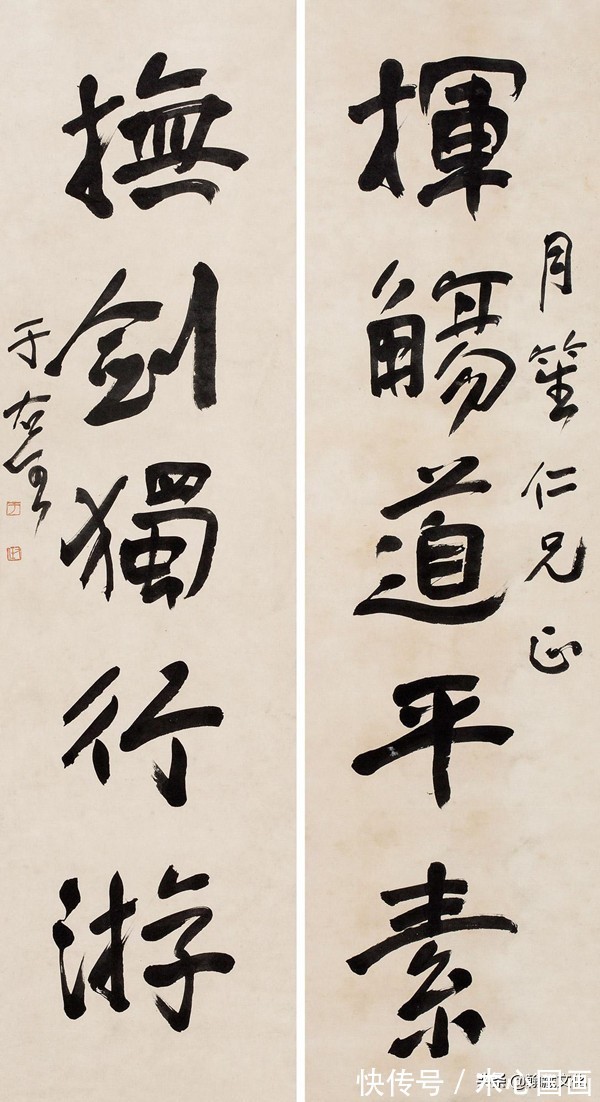 月笙仁兄正
揮觴道平素
撫劍獨行游
于右任
快传号 / 木心国画